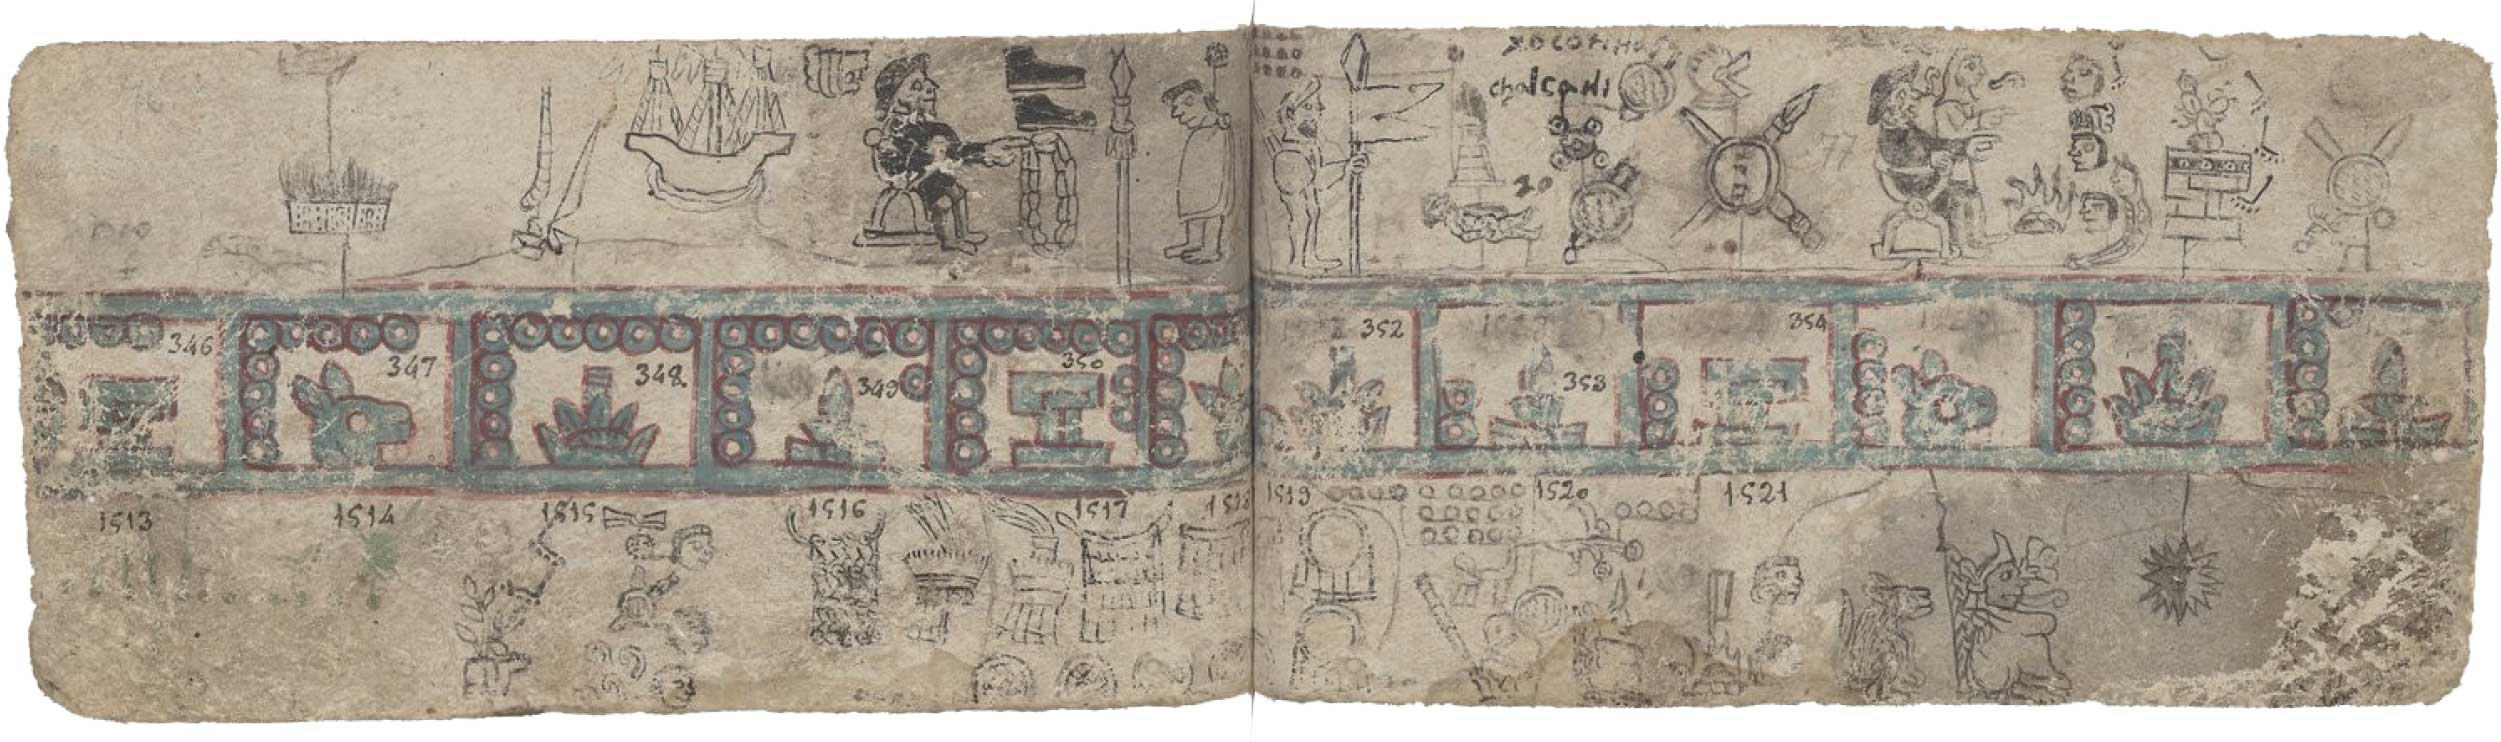 xocotitla
chalcanl
20
77
346
347
348
349
350
352
353
354
1513
1514
1515
1516
1517
1518
1519
1520
1521